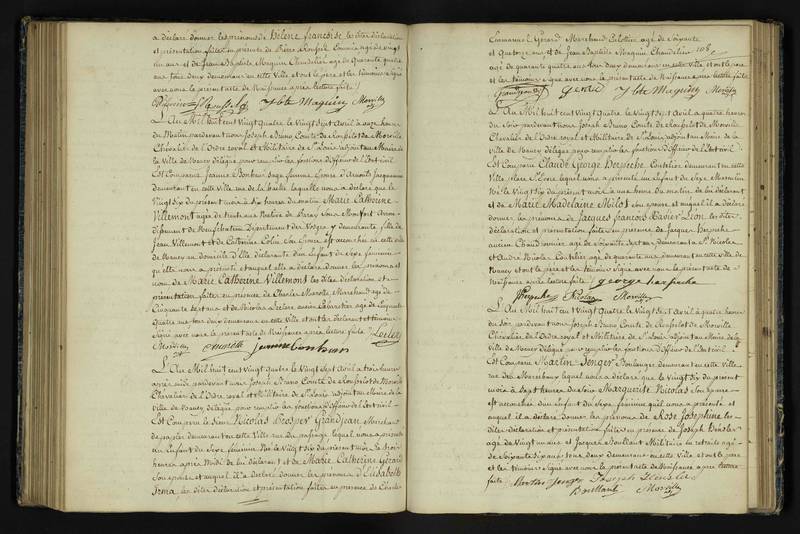 a déclaré donner les prénoms de Hélène françoise les dites déclaration
et présentation faites en présence de Pierre
un ans et de Jean Baptiste Maguin Chandelier agé de quarante quatre
ans tous deux demeurant en cette Ville et ont le père et les témoins signé
avec nous le présent acte de Naissance après lecture faite
J bte Maguin Morville
L'An Mil huit cent Vingt Quatre le Vingt Sept Avril à onze heures
du Matin pardevant nous Joseph Bruno Comte de Morville
Chevalier de l'Ordre royal et Militaire de St Louis adjoint au Maire de
la Ville de Nancy délégué pour remplir les fonctions d'Officier de l'Etat civil
Est Comparue Jeanne Bonheur sage femme
demeurant en cette Ville rue de la laquelle nous a déclaré que le
Vingt Six du présent mois à dix heures du matin Marie Catherine
Villemont agée de trente ans Native de
Département des Vosges y demeurante, fille de
Jean Villemont et de Catherine Colin est accouchée en cette ville
de Nancy au domicile d'Elle déclarante d'un Enfant du Sexe féminin
qu'elle nous a présenté et auquel elle a déclaré donner les prénoms et
nom de Marie Catherine Villemont les dites déclaration et
présentation faites en présence de Charles Marotte Marchand agé de
Cinquante Sept ans et de Nicolas Leclerc ancien Cabaretier agé de Cinquante
Quatre ans tous deux demeurant en cette Ville et ont les déclarant et témoins
Signé avec nous le présent acte de Naissance après lecture faite Leclerc
Morville Marotte jeanne bonheur
L'An Mil huit cent Vingt Quatre le Vingt Sept Avril à trois heures
après midi pardevant nous Joseph Bruno Comte de Morville
Chevalier de l'Ordre royal et Militaire de St Louis adjoint au Maire de la
Ville de Nancy délégué pour remplir les fonctions d'Officier de l'Etat civil
Est Comparu le Sieur Nicolas Prosper Grandjean Marchand
de papier demeurant en cette Ville rue du passage lequel nous a présenté
un Enfant du Sexe féminin Né le Vingt Six du présent mois à trois
heures après Midi de lui déclarant et de Marie Catherine Gérard
Son épouse et auquel il a déclaré donner les prénoms d'Elisabeth
Irma les dites déclaration et présentation faites en présence de Charles
Emmanuel Gérard Marchand agé de Soixante
et Quatorze ans et de Jean Baptiste Maguin Chandelier 108
agé de quarante quatre ans tous deux demeurant en cette Ville et ont le père
et les témoins signé avec nous le présent acte de Naissance après lecture faite
Grandjean Gerard J bte Maguin Morville
L'An Mil huit cent Vingt Quatre le Vingt Sept Avril à quatre heures
du Soir pardevant nous Joseph Bruno Comte de Morville
Chevalier de l'Ordre royal et Militaire de St Louis adjoint au Maire de la
Ville de Nancy délégué pour remplir les fonctions d'Officier de l'Etat civil
Est Comparu Claude George Coutelier demeurant en cette
Ville place St Epvre lequel nous a présenté un Enfant du Sexe Masculin
Né le Vingt Six du présent mois à une heure du matin de lui déclarant
et de Marie Madelaine Milot Son épouse et auquel il a déclaré
donner les prénoms de Jacques françois Xavier Léon les dites
déclaration et présentation faites en présence de Jacques
ancien Chaudronnier agé de Soixante Sept ans demeurant à St Nicolas
et André Nicolas Coutelier agé de quarante ans demeurant en cette ville de
Nancy et ont le père et les témoins Signé avec nous le présent acte de
Naissance après lecture faite george
Nicolas Morville
L'An Mil huit cent Vingt Quatre le Vingt Sept Avril à quatre heures
du Soir pardevant nous Joseph Bruno Comte de Morville
Chevalier de l'Ordre royal et Militaire de St Louis adjoint au Maire de la
Ville de Nancy délégué pour remplir les fonctions d'Officier de l'Etat civil
Est Comparu Martin Jenger Boulanger demeurant en cette Ville
rue des Maréchaux lequel nous a déclaré que le Vingt Six du présent
mois à Sept heures du Soir Marguerite Nicolas Son épouse
est accouchée d'un Enfant du Sexe féminin qu'il nous a présenté et
auquel il a déclaré donner les prénoms de Rose Joséphine les
dites déclaration et présentation faites en présence de Joseph
agé de Vingt un ans et Jacques Boullant Militaire en retraite agé
de Soixante Six ans tous deux demeurans en cette Ville et ont le père
et les témoins Signé avec nous le présent acte de Naissance après lecture
faite Martin Jenger Joseph
Boullant Morville